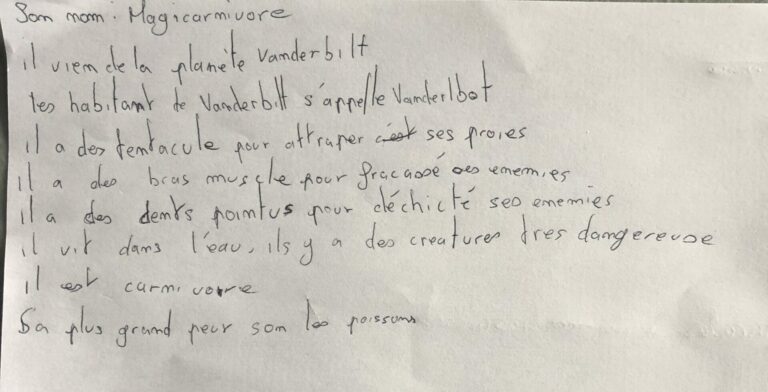 Son nom. Magicarnivore
il vien de la planète Vanderbilt
les habitant de Vanderbilt s'appelle Vanderlbot
il a des tentacule pour attraper c'est ses proies
il a des bras muscle pour fracassé ses enemies
il a des dents pointus pour déchicté ses enemies
il vit dans l'eau, ils y a des creatures tres dangereuse
il est carnivore
Sa plus grand peur son les poissons